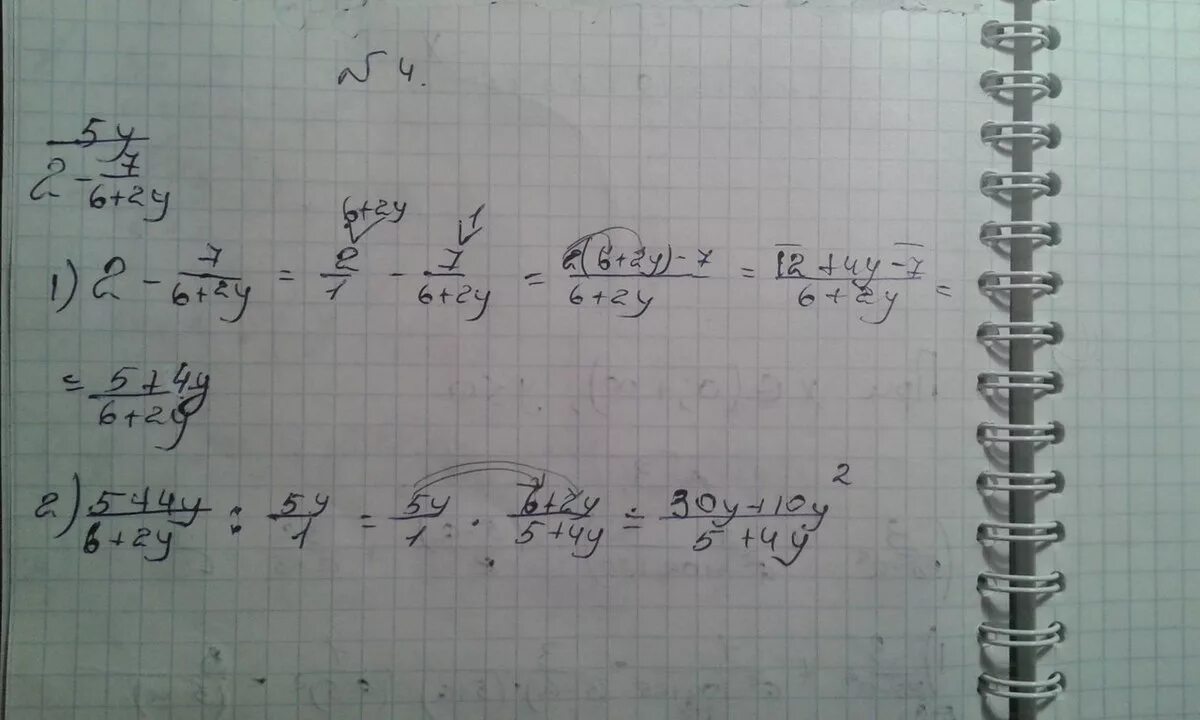 № 4.
5y
2 - 7/(6+2y)
6+2y 1
1) 2 - 7/(6+2y) = 2/1 - 7/(6+2y) = (2(6+2y)-7)/(6+2y) = (12+4y-7)/(6+2y) =
= (5+4y)/(6+2y)
2) (5+4y)/(6+2y) : 5y/1 = 5y/1 · (6+2y)/(5+4y) = (30y+10y²)/(5+4y)